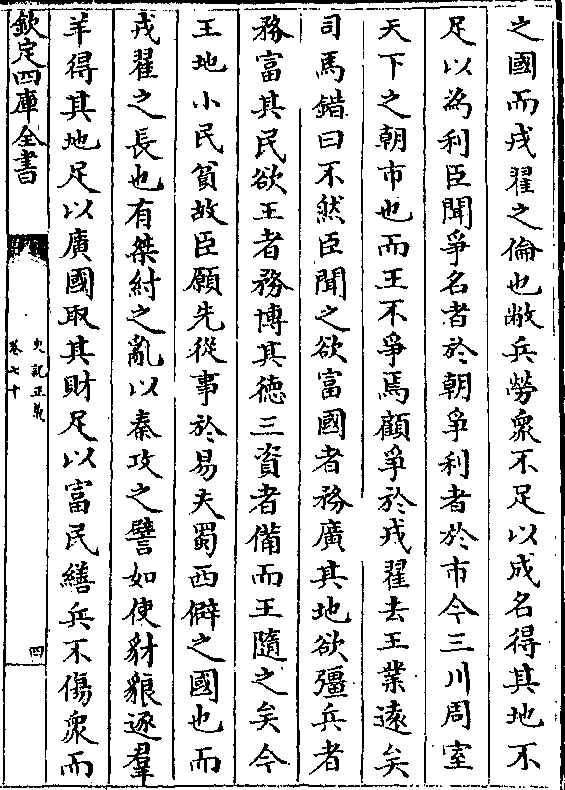 之國而戎翟之倫也敝兵勞衆不足以成名得其地不
足以為利臣聞爭名者於朝爭利者於市今三川周室
天下之朝市也而王不爭焉顧爭於戎翟去王業遠矣
司馬錯曰不然臣聞之欲富國者務廣其地欲彊兵者
務富其民欲王者務博其徳三資者備而王隨之矣今
王地小民貧故臣願先從事於易夫蜀西僻之國也而
戎翟之長也有桀紂之亂以秦攻之譬如使豺狼逐羣
羊得其地足以廣國取其財足以富民繕兵不傷衆而
欽定四庫全書
史記正義
卷七十
四